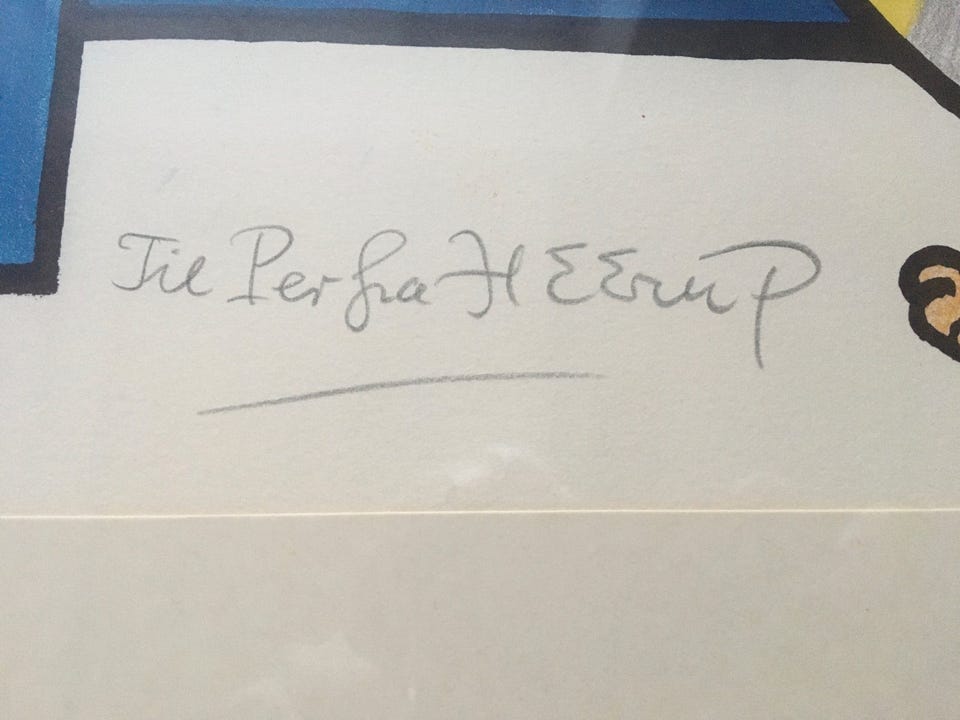 Til Per fra HEErup